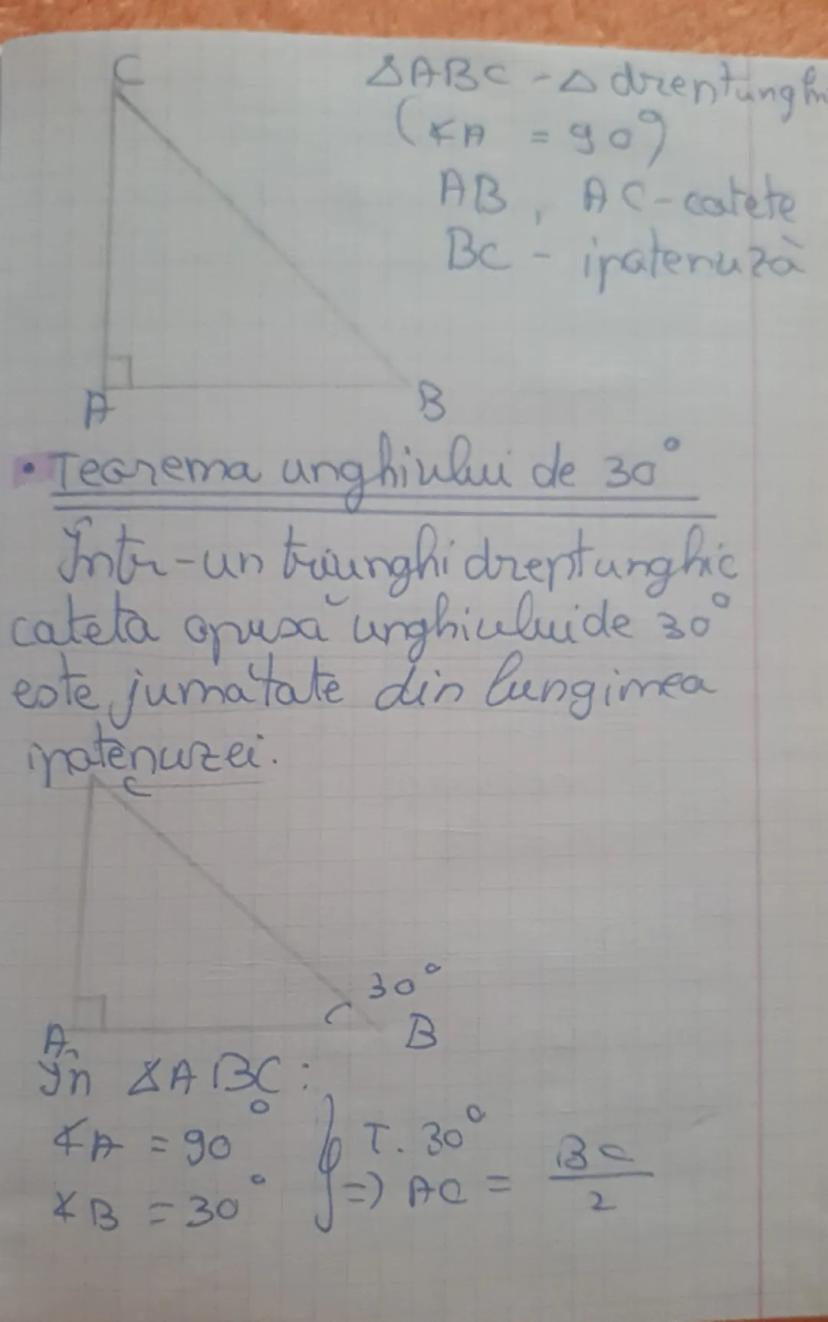 C
ΔABC - Δ dreptungh
(∢A = 90°)
AB, AC - catete
BC - ipotenuză
A B
• Teorema unghiului de 30°
Într-un triunghi dreptunghic
cateta opusă unghiului de 30°
este jumătate din lungimea
ipotenuzei.
C
30°
A B
În ΔABC:
∢A = 90° } T. 30°
∢B = 30° => AC = BC/2